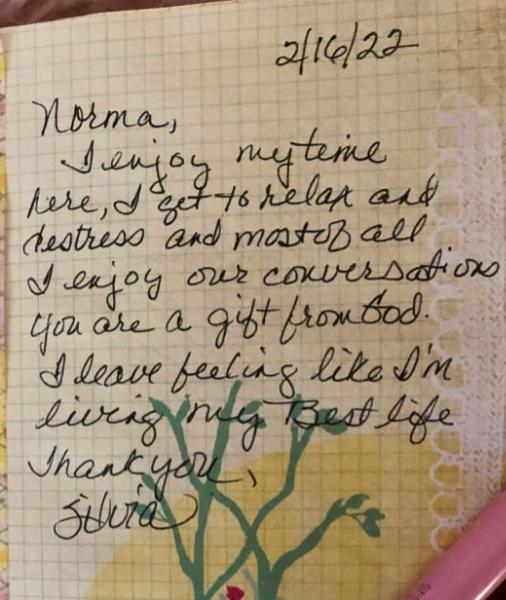 2/16/22
Norma,
I enjoy my time
here, I get to relax and
destress and most of all
I enjoy our conversations
you are a gift from God.
I leave feeling like I'm
living my Best life
Thank you,
Silvia